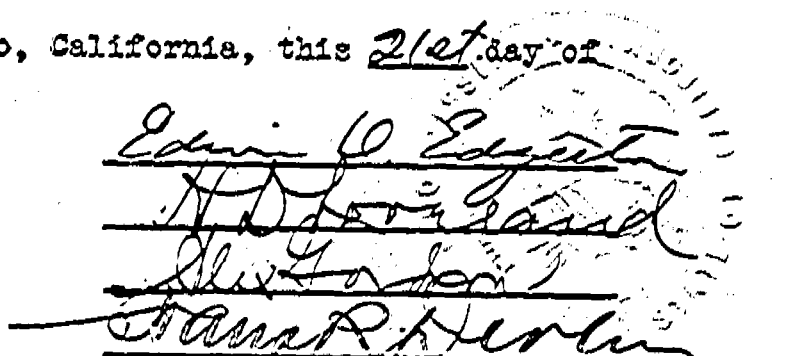 o, California, this 21st day of
Edwin O. Edgerton
H D Loveland
Alex Gordon